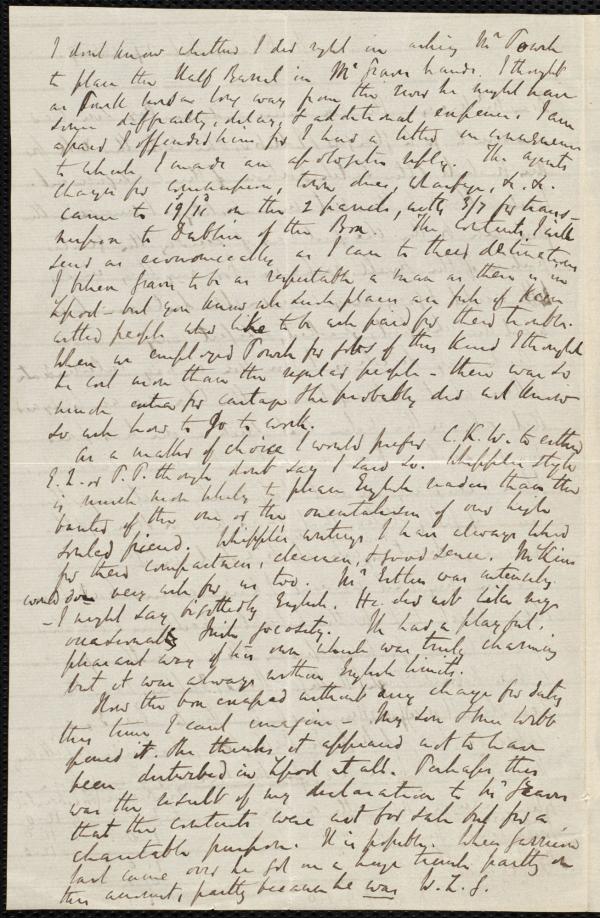 I don't know whether I did right in asking Mr Povah
to place the Half Barrel in Mr Graves hands. I thought
as Povah lived a long way from the river he might have
some difficulty, delay, & additional expense. I am
afraid I offended him for I had a letter in consequence
to which I made an apologetic reply. The agents
charges for commission, town dues, wharfage, &c. &c.
came to 19/10 on the 2 parcels, with 3/7 for trans-
mission to Dublin of the Box. The contents I will
send as economically as I can to their destinations
I believe Graves to be as respectable a man as there is in
Lpool - but you know all such places are full of keen
witted people who like to be well paid for their troubles.
When we employed Povah for jobs of this kind I thought
he cost more than the regular people - there was so
much extra for cartage & he probably did not know
so well how to go to work.
As a matter of choice I would prefer C.K.W. to either
E. Q. or P. P. though don't say I said so. Whipple's style
is much more likely to please English readers than the
banter of the one or the orientalism of our high
souled friend. Whipple's writings I have always liked
for their compactness, clearness, & good sense. McKim
would do very well for us too. Mr Estlin was intensely
- I might say bigottedly English. He did not like my
occasionally Irish jocosity. He had a playful,
pleasant way of his own which was truly charming
but it was always within English limits.
How the box escaped without any charge for duty
this time I can't imagine - My son & her Webb
opened it. He thinks it appeared not to have
been disturbed in Lpool at all. Perhaps this
was the result of my declaration to Mr Graves
that the contents were not for sale but for a
charitable purpose. It is possible. When Garrison
last came over he got in a huge trunk partly on
this account, partly because he was W. L. G.